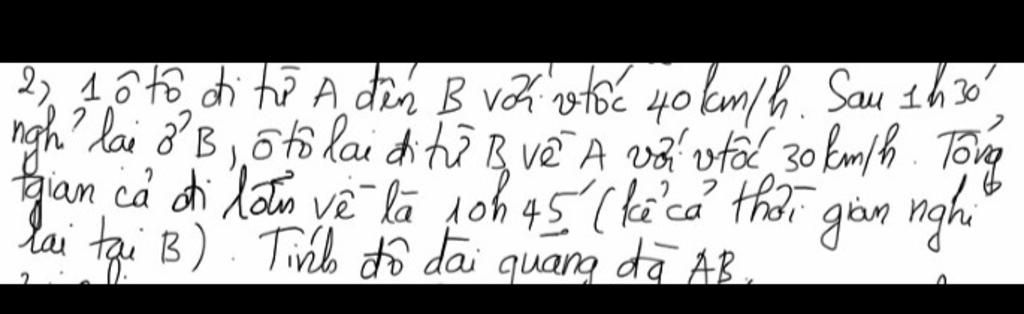 2) 1 ô tô đi từ A đến B với vtốc 40 km/h. Sau 1h30'
nghỉ lại ở B, ô tô lại đi từ B về A với vtốc 30 km/h. Tổng
tgian cả đi lẫn về là 10h45' (kể cả thời gian nghỉ
lại tại B). Tính độ dài quãng đg AB.